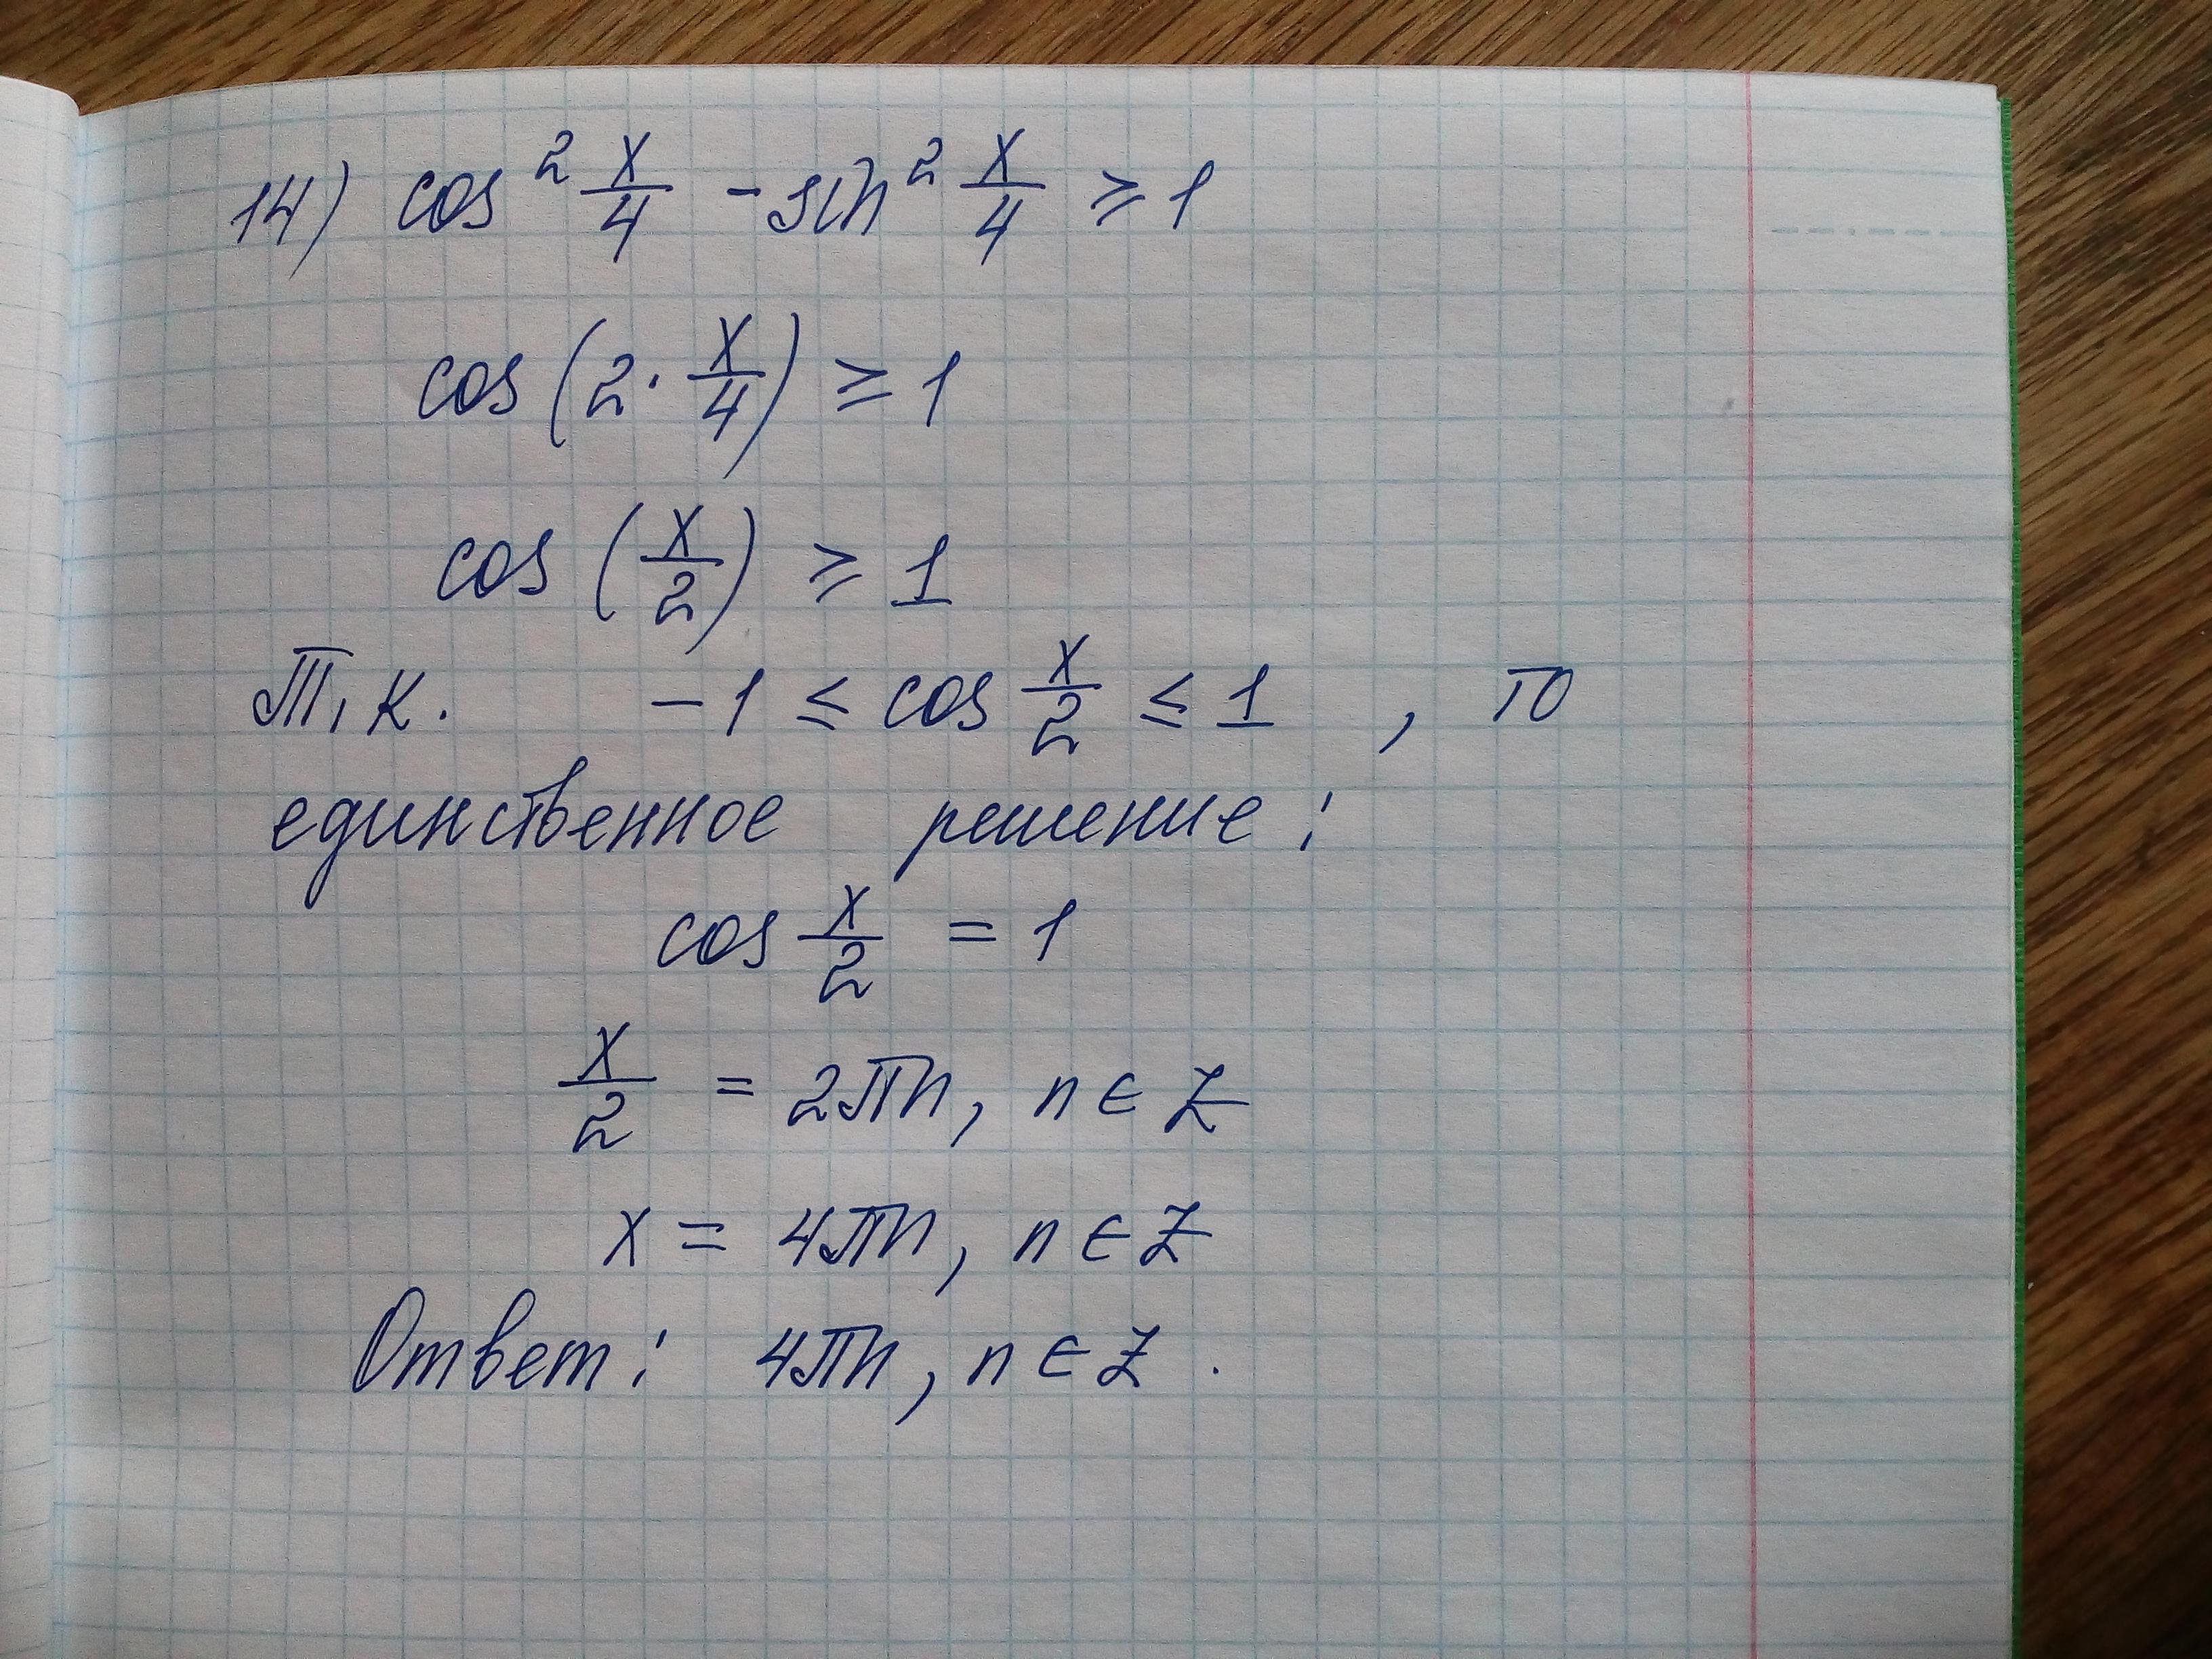 14) cos² x/4 - sin² x/4 ⩾ 1
cos (2 · x/4) ⩾ 1
cos (x/2) ⩾ 1
Т. к. -1 ⩽ cos x/2 ⩽ 1 , то
единственное решение:
cos x/2 = 1
x/2 = 2πn, n ∈ Z
x = 4πn, n ∈ Z
Ответ: 4πn, n ∈ Z .